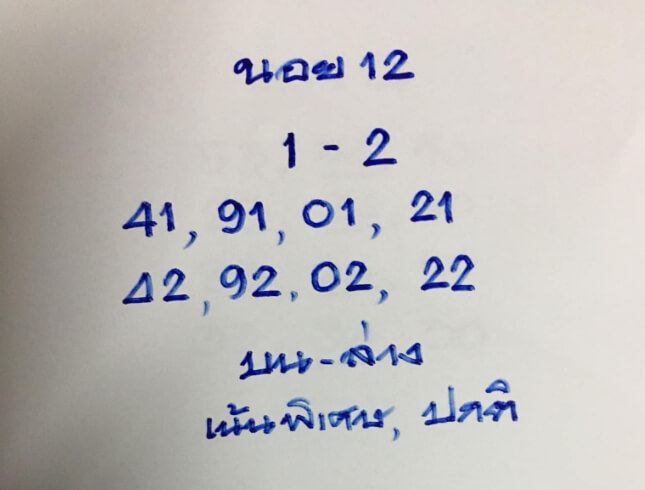 นอย 12
1 - 2
41, 91, 01, 21
42, 92, 02, 22
บน-ล่าง
เน้นพิเศษ, ปกติ